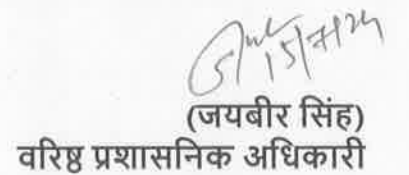 15/7/24
(जयबीर सिंह)
वरिष्ठ प्रशासनिक अधिकारी